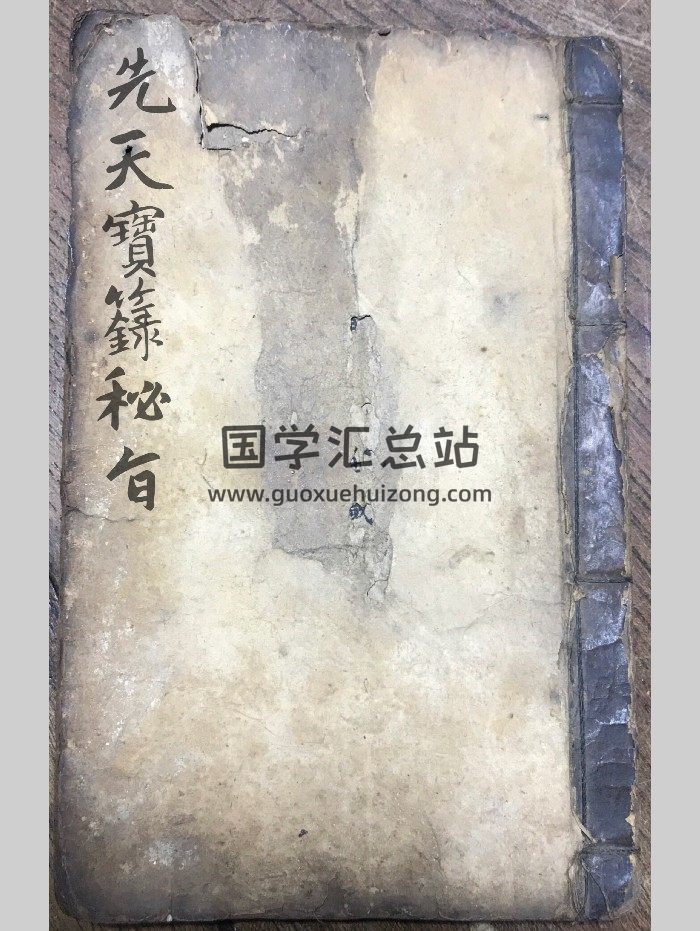 先天寶籙秘旨
国学汇总站
www.guoxuehuizong.com